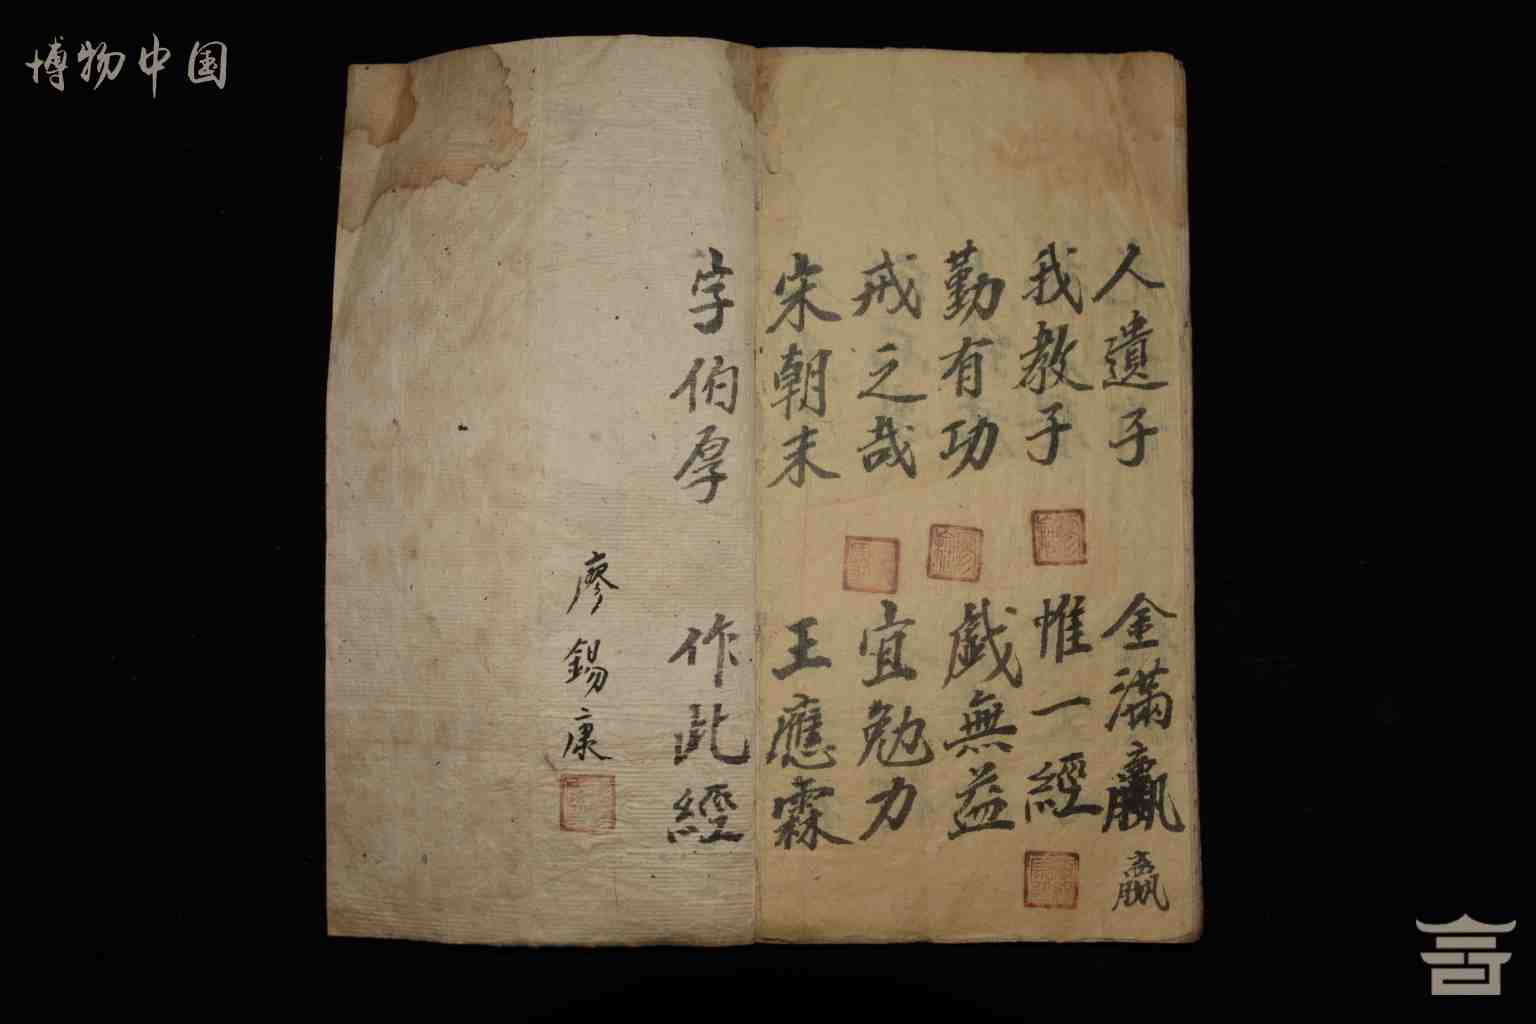 博物中国
人遺子 金滿贏 贏
我教子 惟一經
勤有功 戲無益
戒之哉 宜勉力
宋朝末 王應霖
字伯厚 作此經
廖錫康